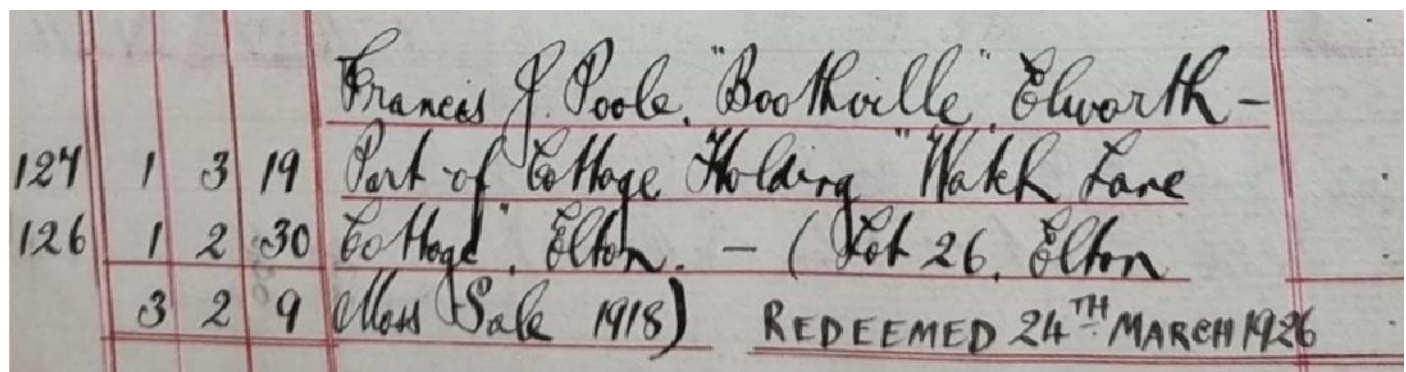 Francis J. Poole. "Boothville", Elworth -
124 1 3 19 Part of Cottage Holding "Watch Lane
126 1 2 30 Cottage", Elton. - (Lot 26, Elton
3 2 9 Moss Sale 1918) REDEEMED 24TH MARCH 1926